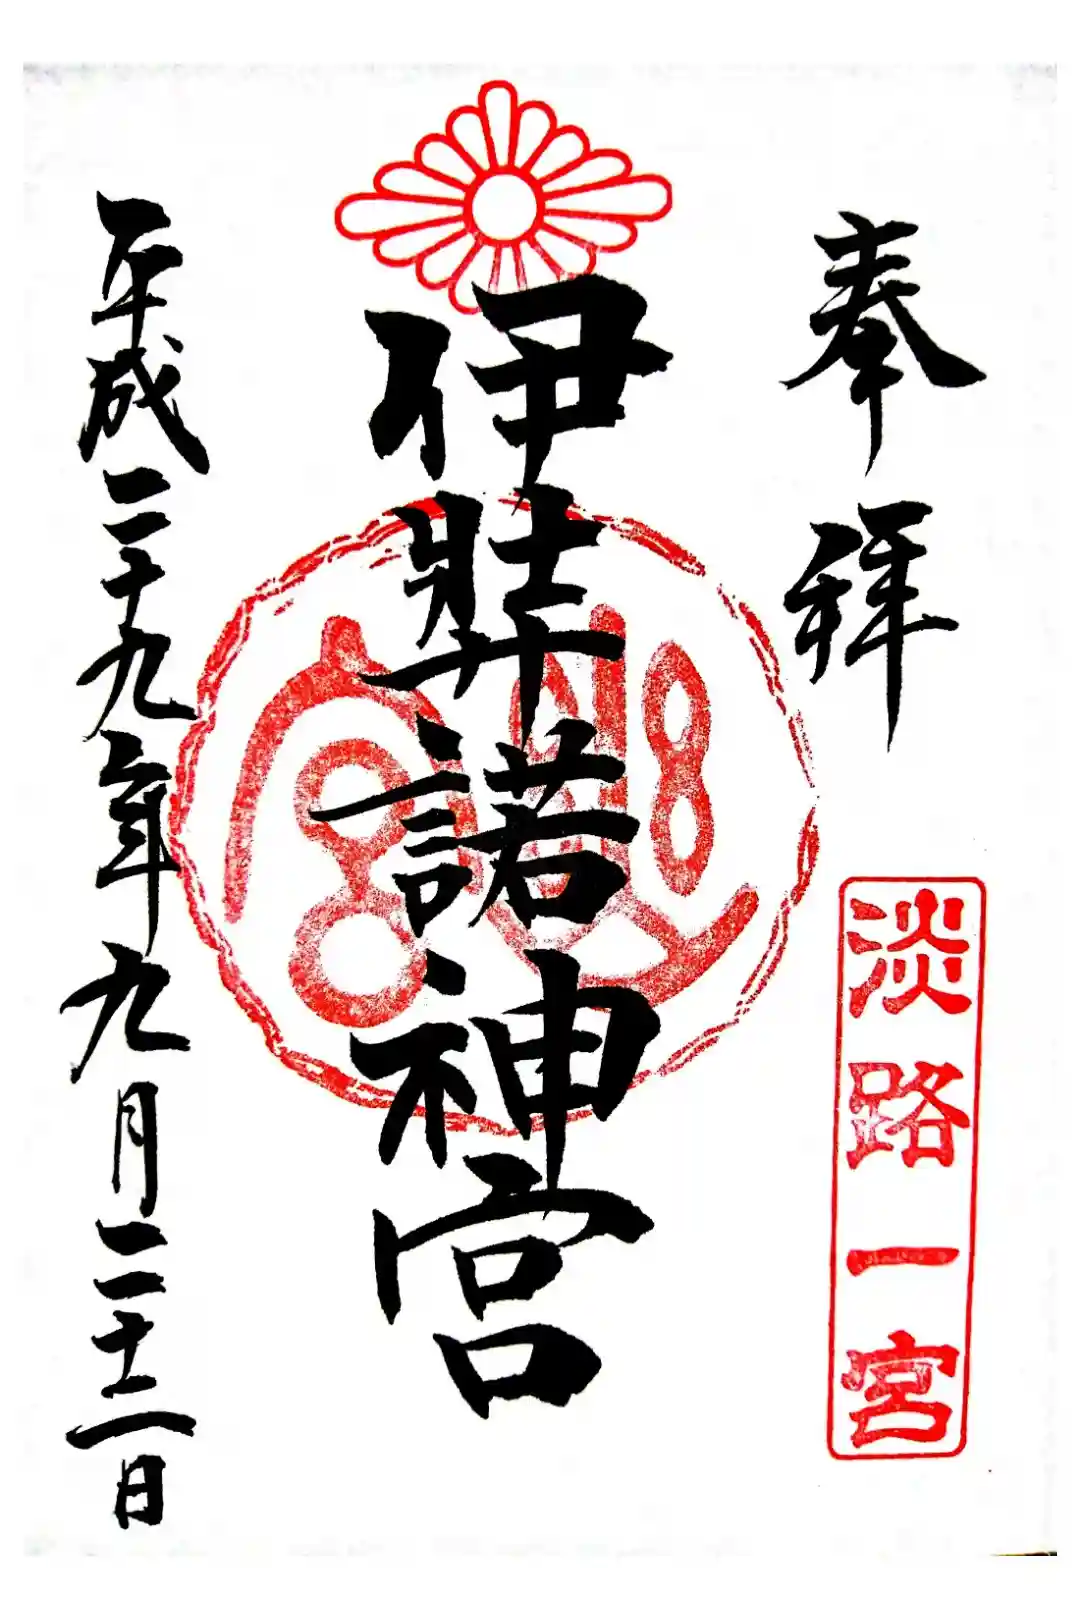 奉拝
淡路一宮
伊弉諾神宮
平成二十九年九月二十二日